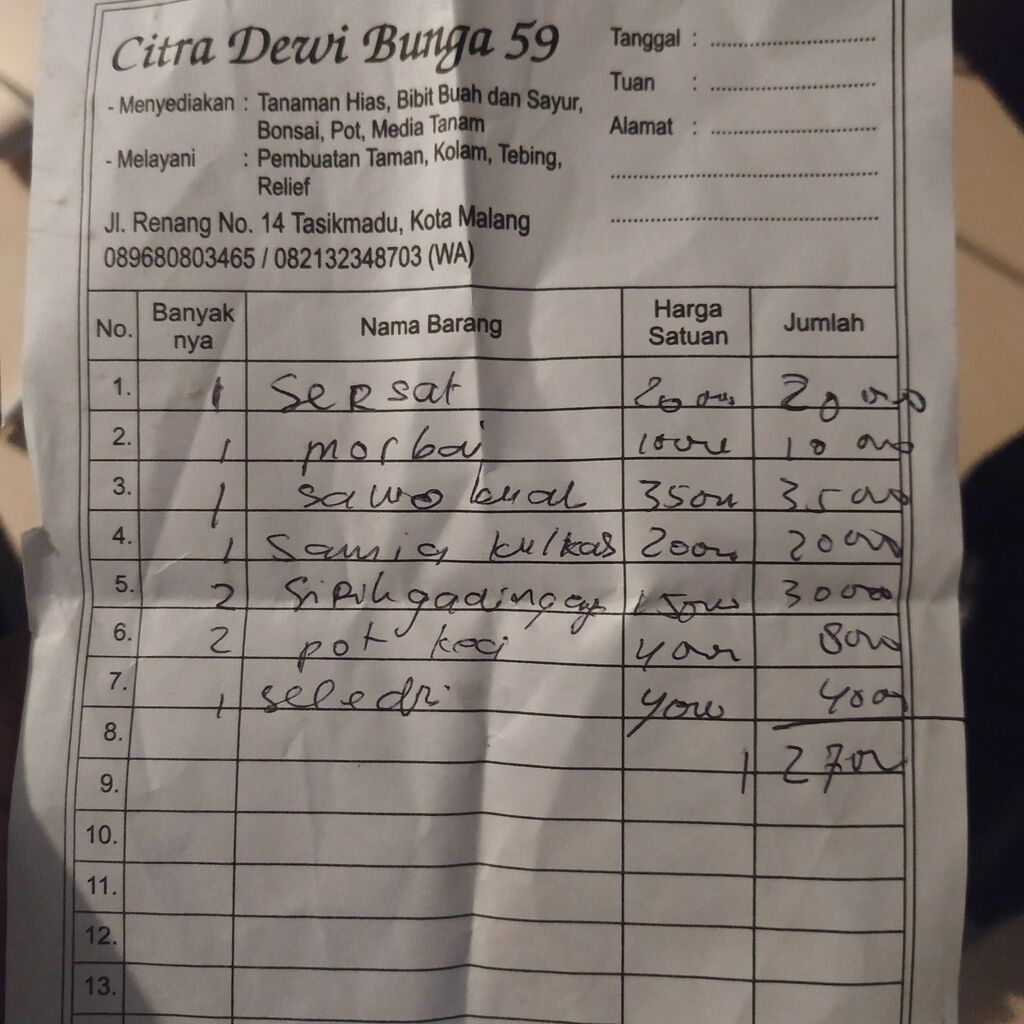 Citra Dewi Bunga 59
- Menyediakan : Tanaman Hias, Bibit Buah dan Sayur,
Bonsai, Pot, Media Tanam
- Melayani : Pembuatan Taman, Kolam, Tebing,
Relief
Jl. Renang No. 14 Tasikmadu, Kota Malang
089680803465 / 082132348703 (WA)
Tanggal :
Tuan :
Alamat :
No. Banyak nya Nama Barang Harga Satuan Jumlah
1. 1 Sersat 20000 20000
2. 1 morbai 10000 10000
3. 1 sawo 35000 35000
4. 1 kulkas 20000 20000
5. 2 Sirih gading 15000 30000
6. 2 pot 4000 8000
7. 1 seledri 4000 4000
8. 127000
9.
10.
11.
12.
13.